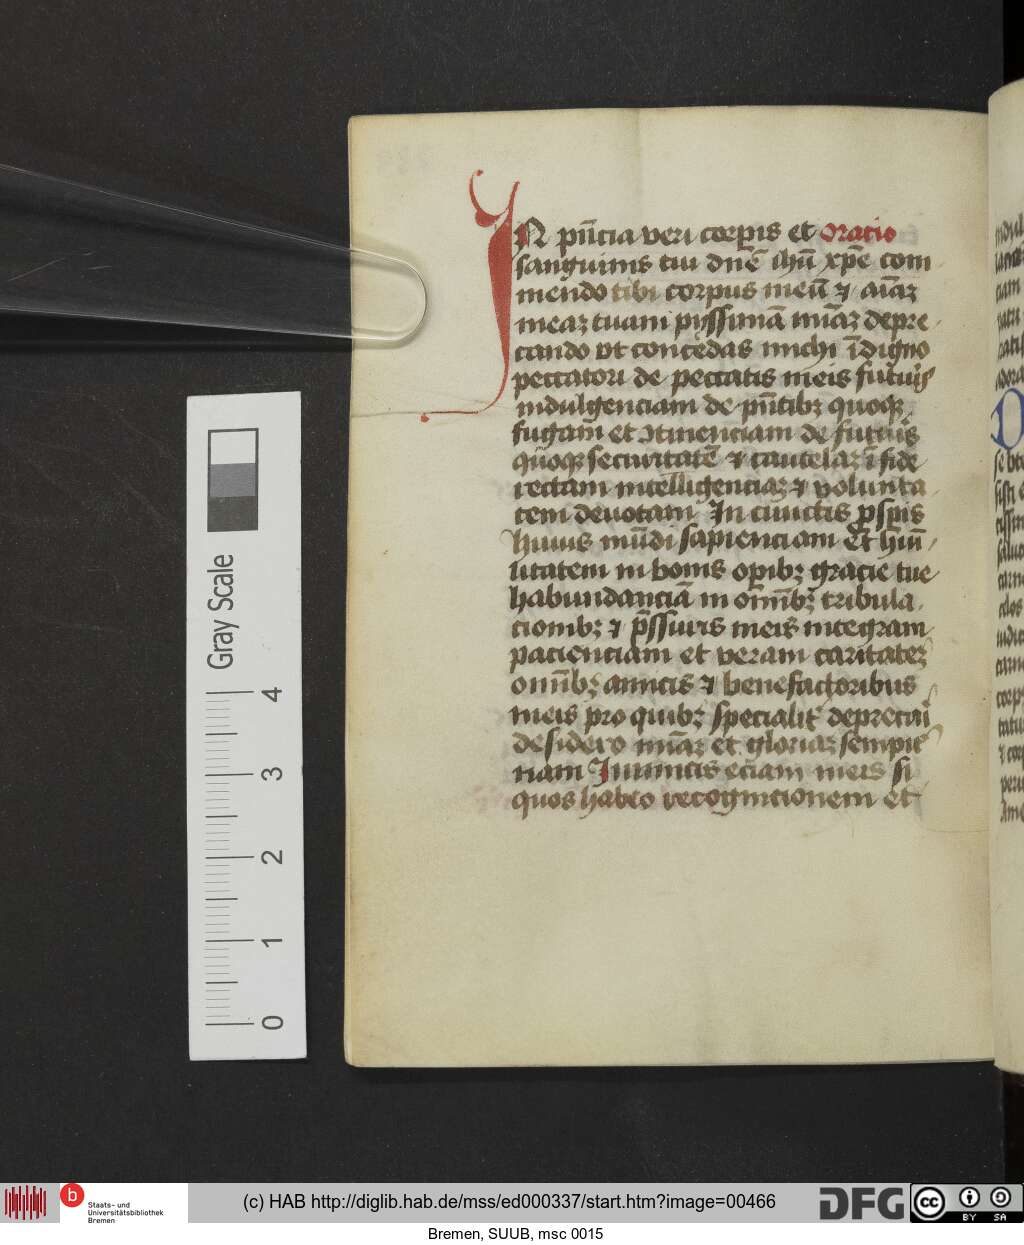 IN pn̄cia veri corpīs et Oracio
sanguinis tui dn̄e ihū xp̄e com
mendo tibi corpus meū ⁊ aīaꝫ
meaꝫ tuam pijssimā mīaꝫ depre
cando vt concedas michi īdigno
peccatori de peccatis meis futuris
indulgenciam de pn̄tibꝫ quoqꝫ
fugam et ↄtinenciam de futuris
quoqꝫ securitatē ⁊ cautelaꝫ ī fide
rectam intelligenciaꝫ ⁊ volunta
tem deuotam In cunctis ꝓsꝑis
huius mūdi sapienciam Et humi
litatem in bonis oꝑibꝫ gracie tue
habundanciā in om̄ibꝫ tribula
cionibꝫ ⁊ p̄ssuris meis integram
pacienciam et veram caritateꝫ
om̄ibꝫ amicis ⁊ benefactoribus
meis pro quibꝫ specialit̄ deprecari
desidero mīaꝫ et gloriaꝫ sempit̄
nam Inimicis eciam meis si
quos habeo recognicionem et
Gray Scale
4
3
2
1
0
b Staats- und
Universitätsbibliothek
Bremen
(c) HAB http://diglib.hab.de/mss/ed000337/start.htm?image=00466
DFG
cc BY SA
Bremen, SUUB, msc 0015